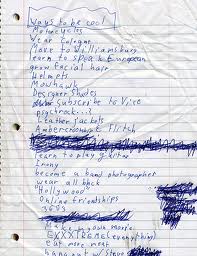 Ways to be cool
Motorcycles
Wear Cologne
Move to Williamsburg
learn to speak European
grow facial hair
Helmets
Mowhawk
Designer Shades
Subscribe to Vice
psychrock...?
Leather Jackets
Ambercrombie Flitch
learn to play guitar
irony
become a band photographer
wear all black
"Hollywood"
Online friendships
Make your own movie
EXXXTREME (everything)
eat more meat
hang out w/ Steve